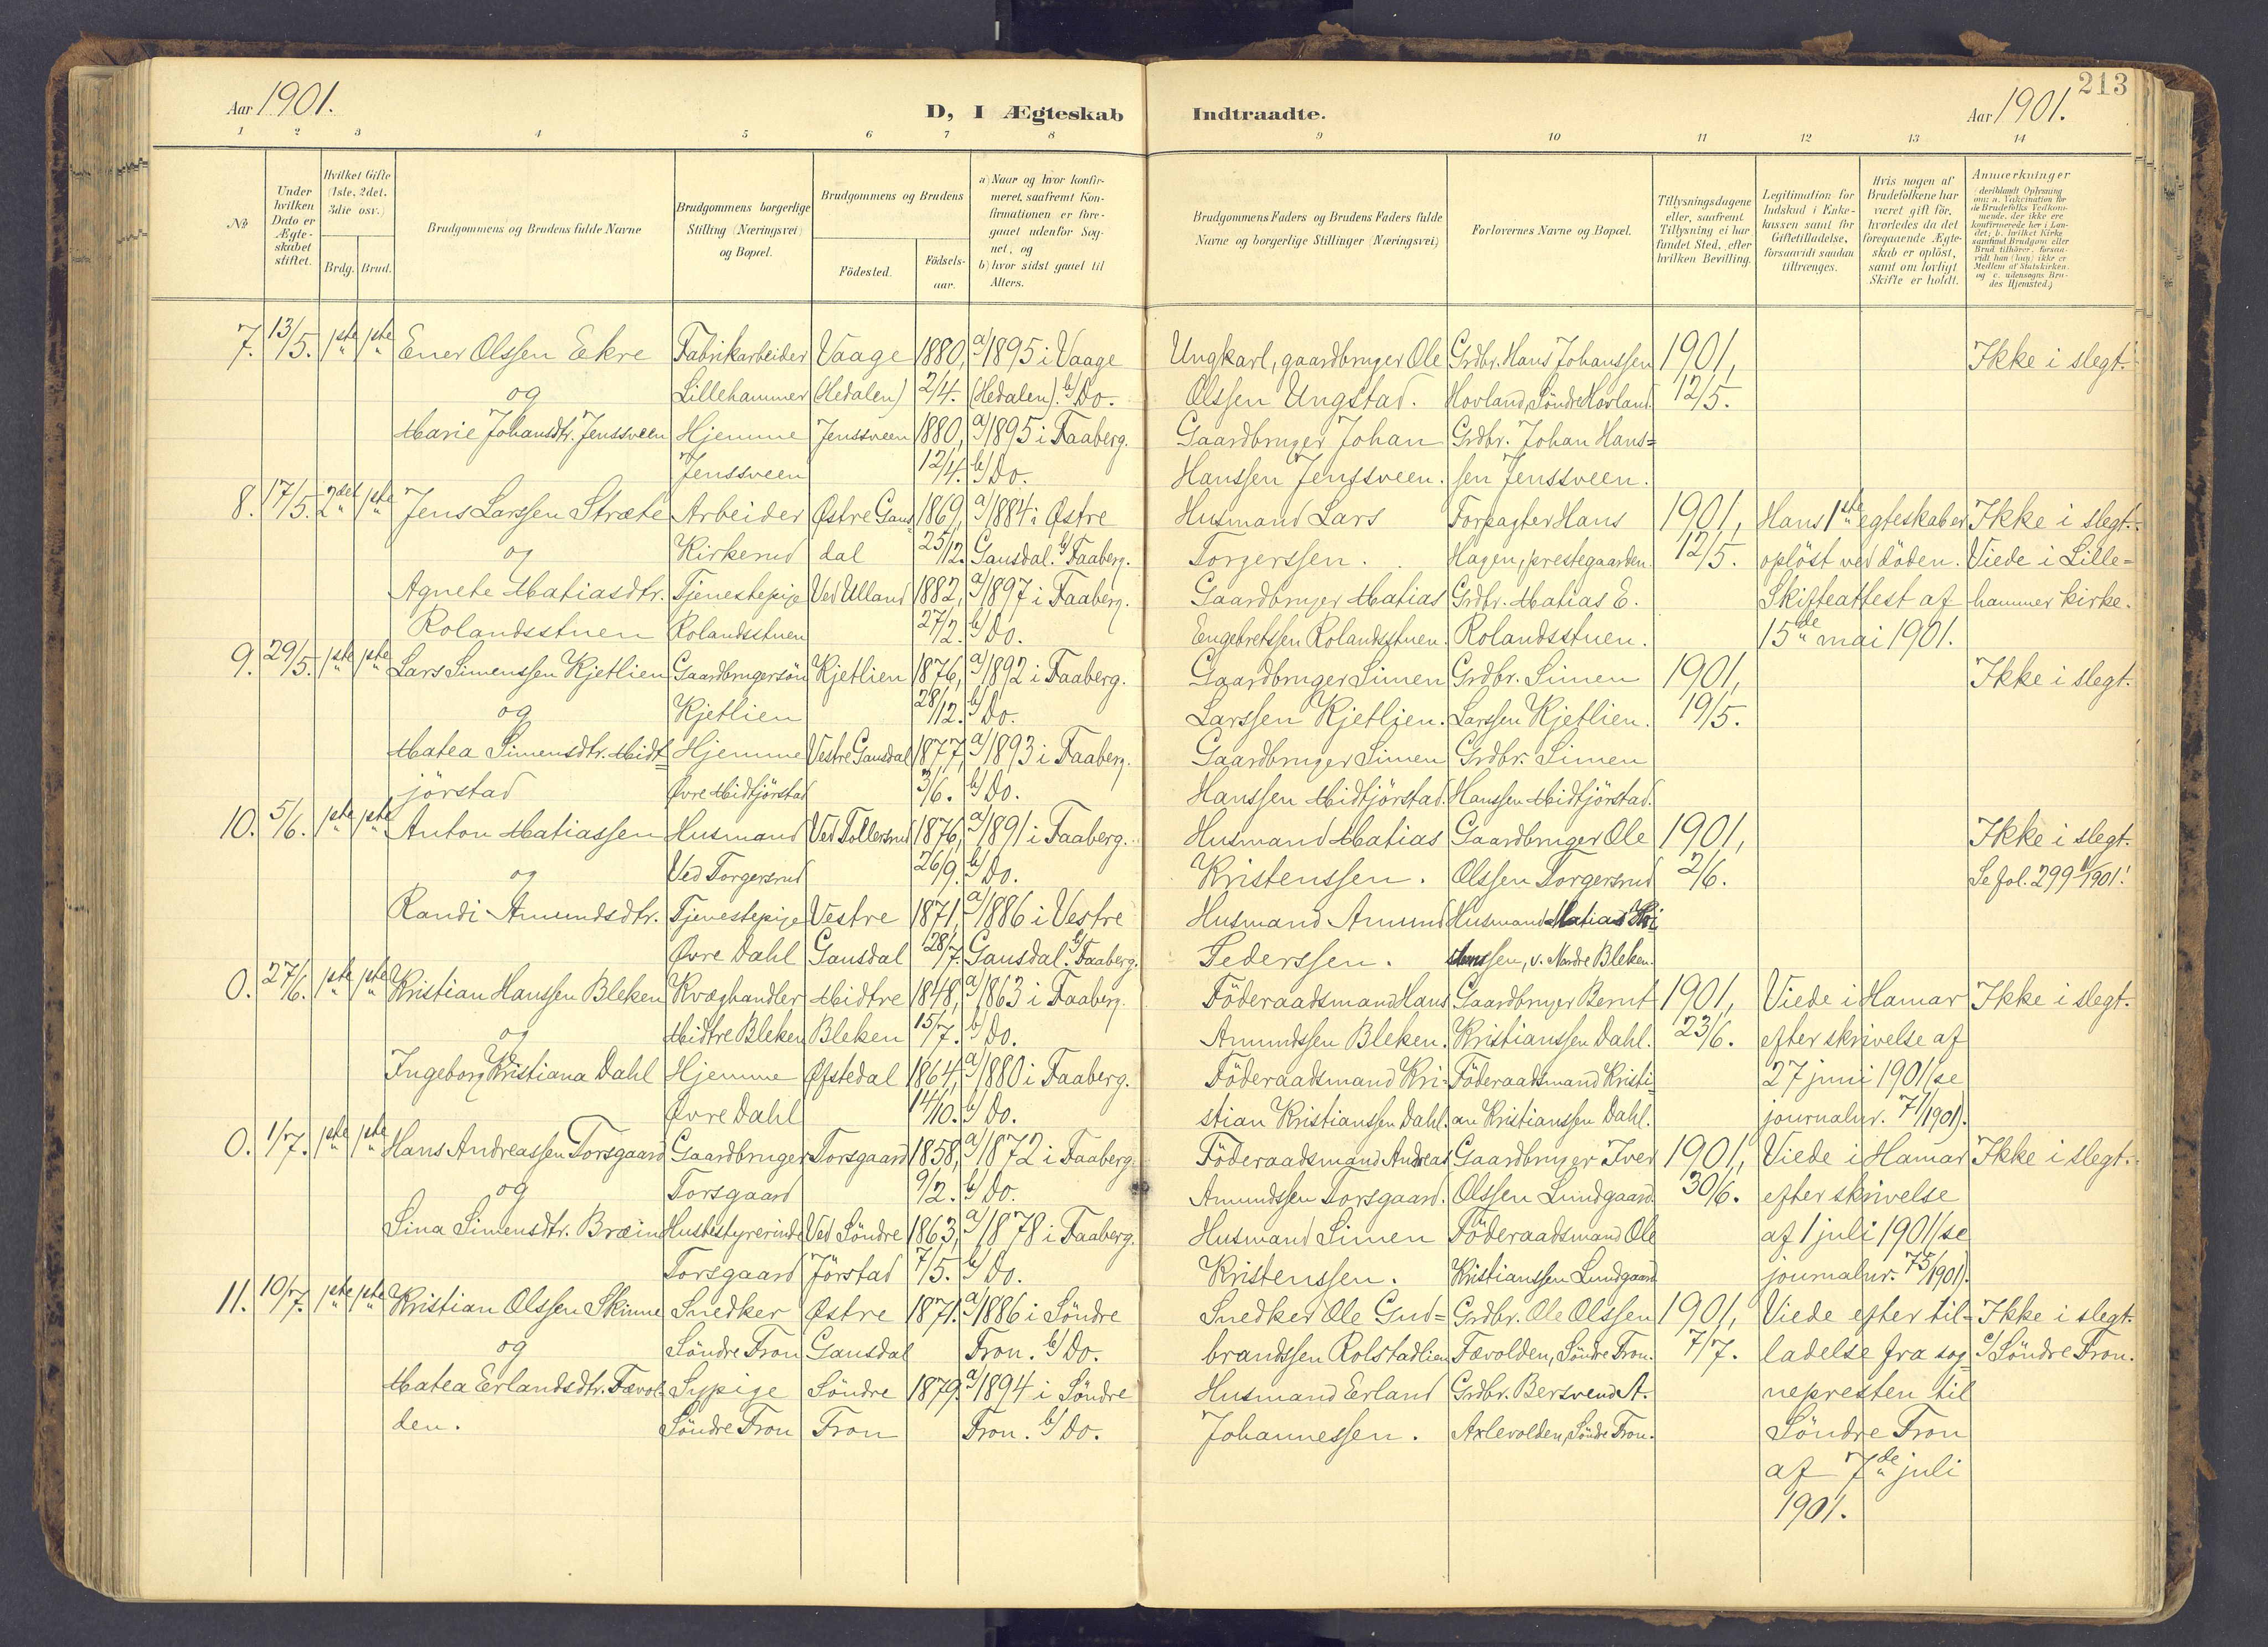 213
Aar 1901.
D, I Ægteskab Indtraadte.
Aar 1901.
1 2 3 4 5 6 7 8 9 10 11 12 13 14
No
Under hvilken Dato er Ægteskabet stiftet.
Hvilket Gifte (1ste, 2det, 3die osv.)
Brdg. Brud.
Brudgommens og Brudens fulde Navne
Brudgommens borgerlige Stilling (Næringsvei) og Bopæl.
Brudgommens og Brudens
Födested.
Födselsaar.
a) Naar og hvor konfirmeret, saafremt Konfirmationen er foregaaet udenfor Sognet, og
b) hvor sidst gaaet til Alters.
Brudgommens Faders og Brudens Faders fulde Navne og borgerlige Stillinger (Næringsvei)
Forlovernes Navne og Bopæl.
Tillysningsdagene eller, saafremt Tillysning ei har fundet Sted, efter hvilken Bevilling.
Legitimation for Indskud i Enkekassen samt for Giftetilladelse, forsaavidt saadan tiltrænges.
Hvis nogen af Brudefolkene har været gift för, hvorledes da det foregaaende Ægteskab er oplöst, samt om lovligt Skifte er holdt.
Anmærkninger (deriblandt Oplysning om: a. Vakcination for de Brudefolks Vedkommende, der ikke ere konfirmerede her i Landet; b. hvilket Kirkesamfund Brudgom eller Brud tilhörer, forsaavidt han (hun) ikke er Medlem af Statskirken, og c. udensogns Brudes Hjemsted.)
7. 13/5. 1ste 1ste Ener Olssen Ekre Fabrikarbeider Vaage 1880, a/1895 i Vaage Ungkarl, gaardbruger Ole Grdbr. Hans Johanssen 1901, Ikke i slegt.
og Lillehammer (Hedalen) 2/4. (Hedalen). b/Do. Olssen Ungstad. Hovland, Söndre Hovland. 12/5.
Marie Johansdtr. Jenssveen Hjemme Jenssveen 1880, a/1895 i Faaberg. Gaardbruger Johan Grdbr. Johan Hans=
Jenssveen 12/4. b/Do. Hanssen Jenssveen. sen Jenssveen.
8. 17/5. 2det 1ste Jens Larssen Stræte Arbeider Østre Gaus 1869, a/1884 i Østre Husmand Lars Forpagter Hans 1901, Hans 1ste egteskab er Ikke i slegt.
og Kirkerud dal 25/12. Gausdal. b/Faaberg. Torgerssen. Hagen, prestegaarden. 12/5. oplöst ved döden. Viede i Lille=
Agnete Matiasdtr. Tjenestepige Ved Ulland 1882, a/1897 i Faaberg. Gaardbruger Matias Grdbr. Matias E. Skifteattest af hammer kirke.
Rolandsstuen Rolandsstuen 27/2. b/Do. Engebretssen Rolandsstuen. Rolandsstuen. 15de mai 1901.
9. 29/5. 1ste 1ste Lars Simenssen Kjetlien Gaardbrugersön Kjetlien 1876, a/1892 i Faaberg. Gaardbruger Simen Grdbr. Simen 1901, Ikke i slegt.
og Kjetlien 28/12. b/Do. Larssen Kjetlien. Larssen Kjetlien. 19/5.
Matea Simensdtr. Midt= Hjemme Vestre Gausdal 1877, a/1893 i Faaberg. Gaardbruger Simen Grdbr. Simen
jörstad Øvre Midtjörstad 3/6. b/Do. Hanssen Midtjörstad. Hanssen Midtjörstad.
10. 5/6. 1ste 1ste Anton Matiassen Husmand Ved Tollersrud 1876, a/1891 i Faaberg. Husmand Matias Gaardbruger Ole 1901, Ikke i slegt.
og Ved Torgersrud 26/9. b/Do. Kristenssen. Olssen Torgersrud 2/6. Se fol. 299 1/1901!
Randi Amundsdtr. Tjenestepige Vestre 1871, a/1886 i Vestre Husmand Amund Husmand Matias Kri
Øvre Dahl Gausdal 28/7. Gausdal. b/Faaberg. Pederssen. stenssen, v. Nordre Bleken.
0. 27/6. 1ste 1ste Kristian Hanssen Bleken Kvæghandler Midtre 1848, a/1863 i Faaberg. Föderaadsmand Hans Gaardbruger Bernt 1901, Viede i Hamar Ikke i slegt.
og Midtre Bleken Bleken 15/7. b/Do. Amundssen Bleken. Kristianssen Dahl. 23/6. efter skrivelse af
Ingeborg Kristiana Dahl Hjemme Øfstedal 1864, a/1880 i Faaberg. Föderaadsmand Kri= Föderaadsmand Kristi=
27 juni 1901 (se
Øvre Dahl 14/10. b/Do. stian Kristianssen Dahl. an Kristianssen Dahl. journalnr. 71/1901).
0. 1/7. 1ste 1ste Hans Andreassen Torsgaard Gaardbruger Torsgaard 1858, a/1872 i Faaberg. Föderaadsmand Andreas Gaardbruger Iver 1901, Viede i Hamar Ikke i slegt.
og Torsgaard 9/2. b/Do. Amundssen Torsgaard. Olssen Lundgaard. 30/6. efter skrivelse
Sina Simensdtr. Bræin Husbestyrerinde Ved Söndre 1863, a/1878 i Faaberg. Husmand Simen Föderaadsmand Ole af 1 juli 1901 (se
Torsgaard Jörstad 7/5. b/Do. Kristenssen. Kristianssen Lundgaard journalnr. 75/1901).
11. 10/7. 1ste 1ste Kristian Olssen Skinne Snedker Østre 1871. a/1886 i Söndre Snedker Ole Gud= Grdbr. Ole Olssen 1901, Viede efter til= Ikke i slegt.
og Söndre Fron Gausdal Fron. b/Do. brandssen Rolstadlien Fævolden, Söndre Fron. 7/7. ladelse fra sog= c/Söndre Fron.
Matea Erlandsdtr. Fævol= Sypige Söndre 1879. a/1894 i Söndre Husmand Erland Grdbr. Bersvend A. nepresten til
den. Söndre Fron Fron Fron. b/Do. Johannessen. Axlevolden, Söndre Fron. Söndre Fron
af 7de juli
1901.